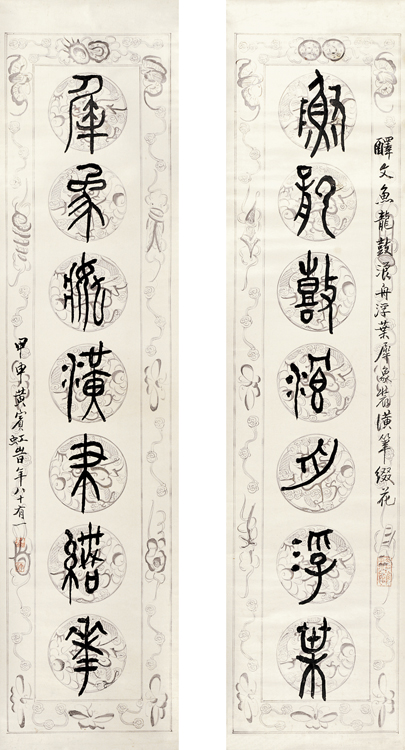 醳文魚龍鼓浪舟浮葉犀象裝潢筆綴花
魚龍鼓浪舟浮葉
犀象裝潢筆綴華
甲申黃賓虹旹年八十有一